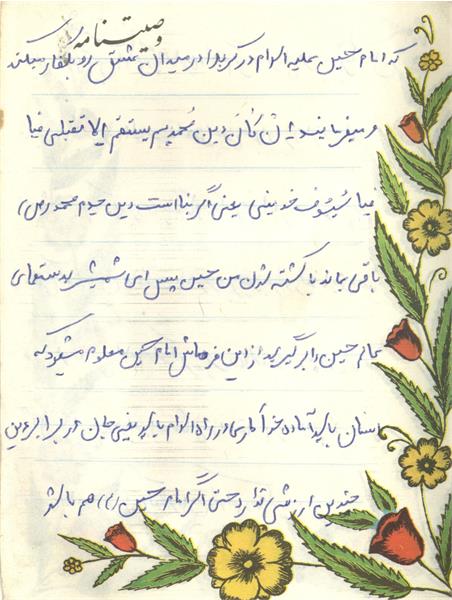 وصیتنامه
که امام حسین علیه السلام در کربلا در میدان عشق رو بکفار میکند
و میفرمایند ان کان دین محمد لم یستقم الا بقتلی فیا
فیا سیوف خذینی یعنی اگر بنا است دین جدم محمد (ص)
باقی بماند با کشته شدن من حسین پس ای شمشیر بدستهای
عالم حسین را برگیرید از این فرمایش امام حسین معلوم میشود که
انسان باید آماده فداکاری در راه اسلام باشد یعنی جان در برابر دین
چندین ارزشی ندارد حتی اگر امام حسین (ع) هم باشد